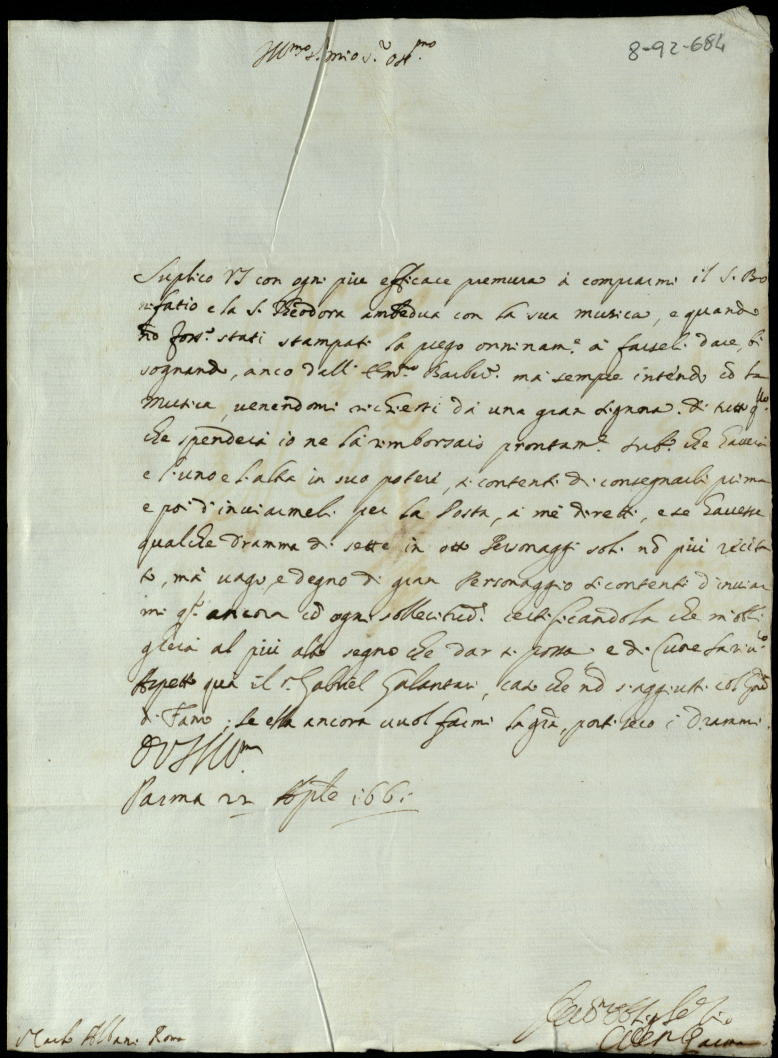 8-92-684
Ill.mo S. mio S.r Oss.mo
Suplico VS con ogni piu efficace premura à comprarmi il S. Bo
nifatio e la S. Theodora ambedua con la sua musica, e quando
nò foss.o stati stampati la prego onninam.e à farseli dare, bi
sognando, anco dall' Em.mo Barber.o mà sempre intendo cò la
Musica, venendomi richiesti dà una gran Signora. di tutto q.llo
che spenderà io ne la rimborsarò prontam.e sub.o che haverà
e l'uno e l'altra in suo potere, si contenti di consegnarli prima
e poi d'inviarmeli per la Posta, à mè diretti, e se havesse
qualche dramma di sette in otto Personaggi soli nò più recita
to, mà vago, e degno di gran Personaggio si contenti d'inviar
mi q.o ancora cò ogni sollecitud.e certificandola che m'obli
gherà al più alto segno che dar si possa e di Cuore la riv.co
Aspetto quà il S.r Gabriel Galantari, caso che nò s'aggiusti col
di Fano; se ella ancora vuol farmi la grã, porti seco i drammi.
DVSIll.ma
Parma 22 Aple 1661
Carlo Albani Roma